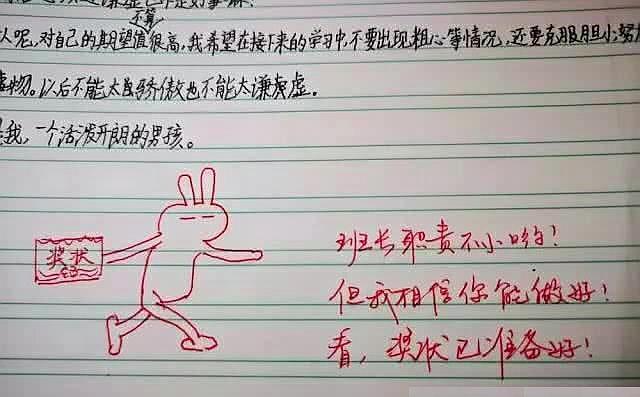 不算
人呢,对自己的期望值很高,我希望在接下来的学习中,不要出现粗心等情况,还要克服胆小努
事物。以后不能太骄傲也不能太谦虚。
是我,一个活泼开朗的男孩。
奖状
班长职责不小哟!
但我相信你能做好!
看,奖状已准备好!